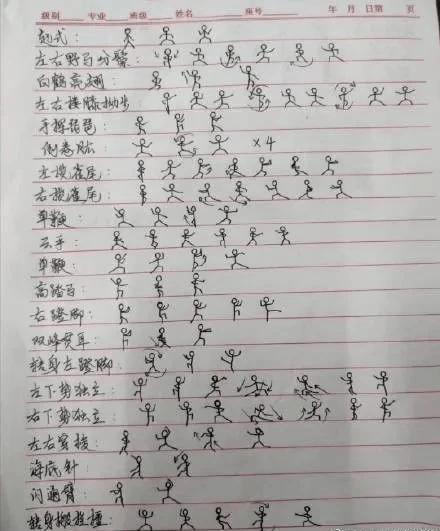 级别 专业 班级 姓名 座号 年 月 日第 页
起式：
左右野马分鬃：
白鹤亮翅：
左右搂膝拗步
手挥琵琶：
倒卷肱： ×4
左揽雀尾：
右揽雀尾：
单鞭：
云手：
单鞭：
高探马：
右蹬脚：
双峰贯耳：
转身左蹬脚：
左下势独立：
右下势独立：
左右穿梭：
海底针：
闪通臂：
转身搬拦捶：